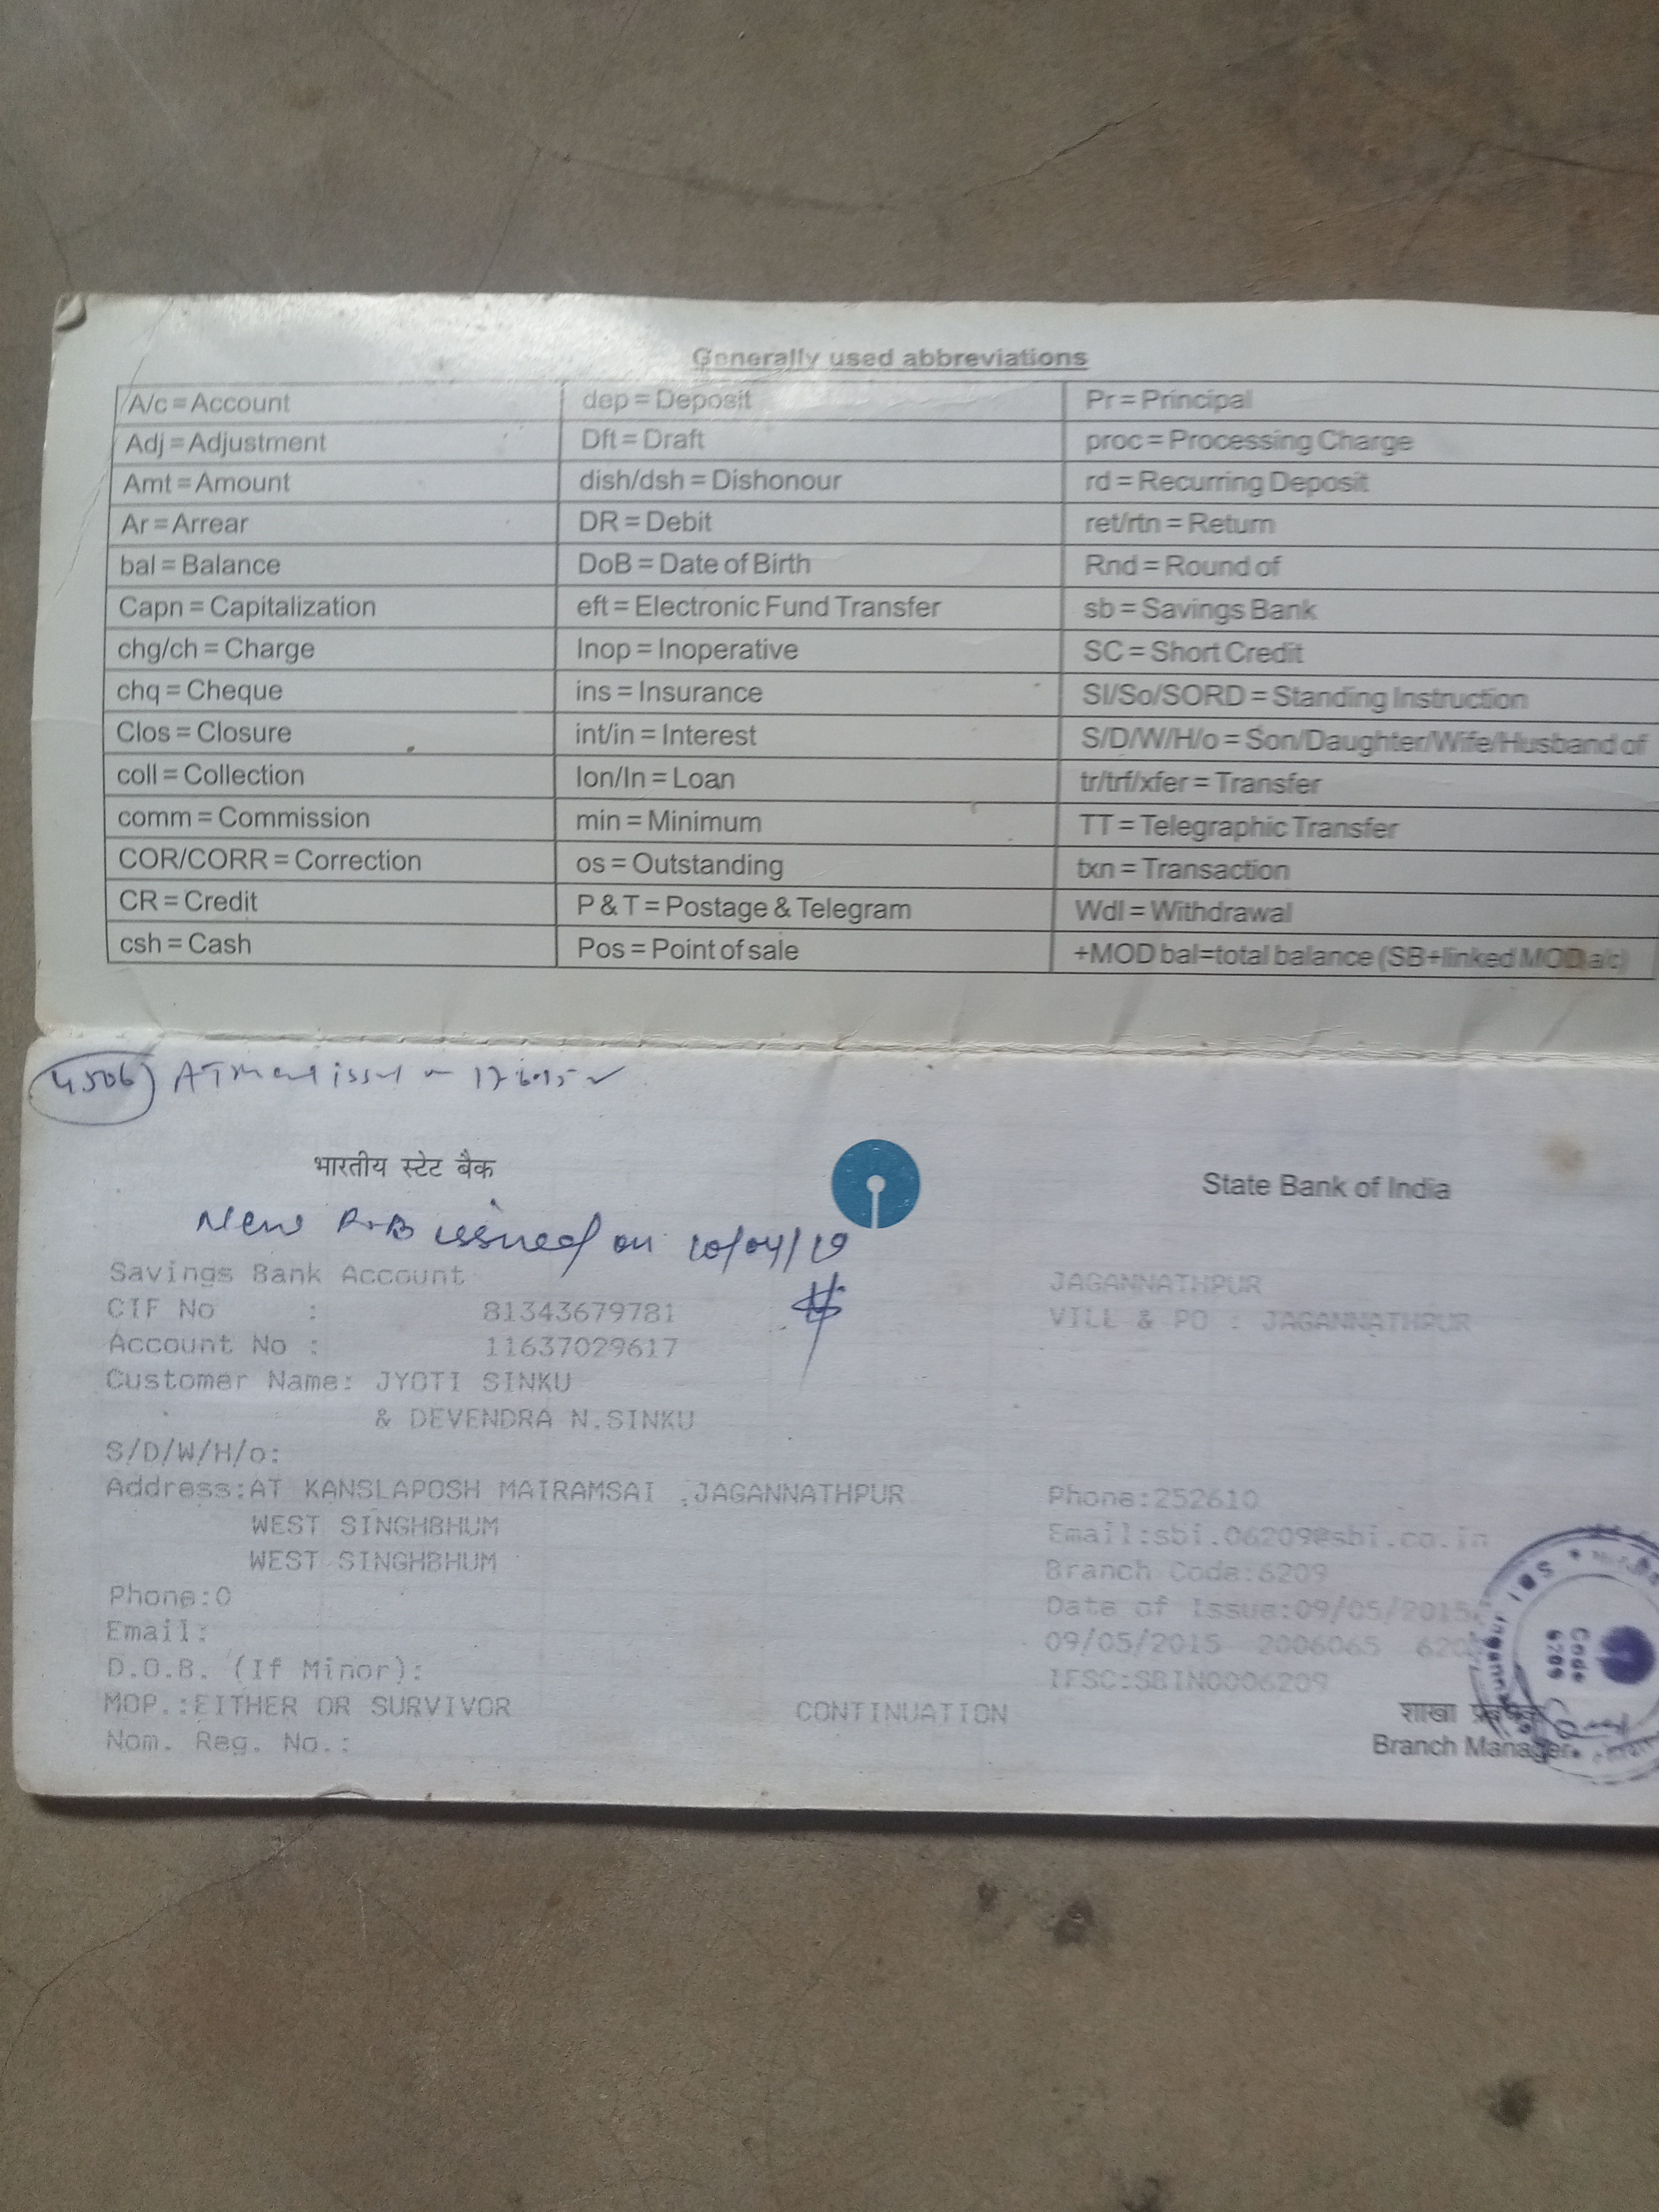 Generally used abbreviations
A/c = Account dep = Deposit Pr = Principal
Adj = Adjustment Dft = Draft proc = Processing Charge
Amt = Amount dish/dsh = Dishonour rd = Recurring Deposit
Ar = Arrear DR = Debit ret/rtn = Return
bal = Balance DoB = Date of Birth Rnd = Round of
Capn = Capitalization eft = Electronic Fund Transfer sb = Savings Bank
chg/ch = Charge Inop = Inoperative SC = Short Credit
chq = Cheque ins = Insurance SI/So/SORD = Standing Instruction
Clos = Closure int/in = Interest S/D/W/H/o = Son/Daughter/Wife/Husband of
coll = Collection lon/ln = Loan tr/trf/xfer = Transfer
comm = Commission min = Minimum TT = Telegraphic Transfer
COR/CORR = Correction os = Outstanding txn = Transaction
CR = Credit P & T = Postage & Telegram Wdl = Withdrawal
csh = Cash Pos = Point of sale +MOD bal=total balance (SB+linked MOD a/c)
4506 ATM
भारतीय स्टेट बैंक State Bank of India
New issued on 10/04/19
Savings Bank Account JAGANNATHPUR
CIF No : 81343679781 VILL & PO : JAGANNATHPUR
Account No : 11637029617
Customer Name: JYOTI SINKU
& DEVENDRA N.SINKU
S/D/W/H/o:
Address:AT KANSLAPOSH MAIRAMSAI ,JAGANNATHPUR Phone:252610
WEST SINGHBHUM Email:sbi.06209@sbi.co.in
WEST SINGHBHUM Branch Code:6209
Phone:0 Date of Issue:09/05/2015
Email: 09/05/2015 2006065
D.O.B. (If Minor): IFSC:SBIN0006209
MOP.:EITHER OR SURVIVOR CONTINUATION शाखा
Nom. Reg. No.: Branch Manager
SBI
Code